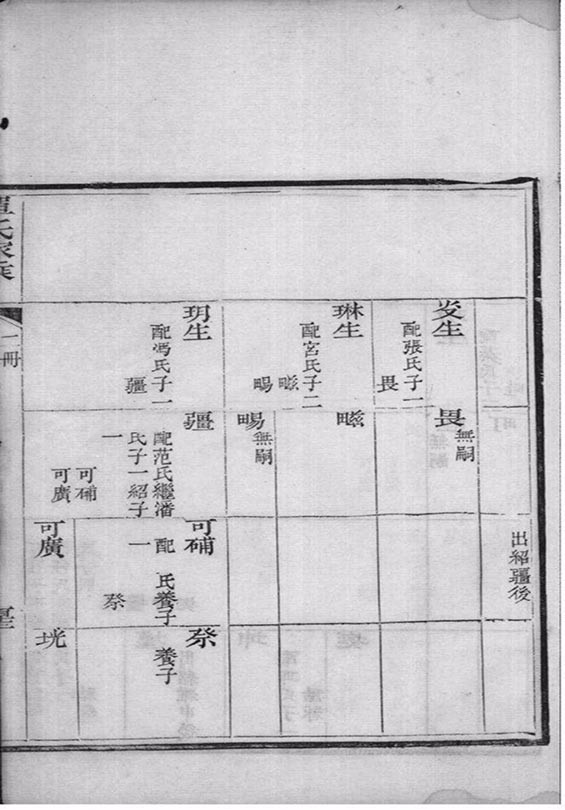 生
配張氏子一
畏
琳生
配宮氏子二
暘
玥生
配馮氏子一
疆
畏
無嗣
暘
無嗣
疆
配范氏繼潘
氏子一紹子
一
可
可廣
出紹疆後
可
配 氏養子
一
可廣
養子
垙
氏家族
二冊